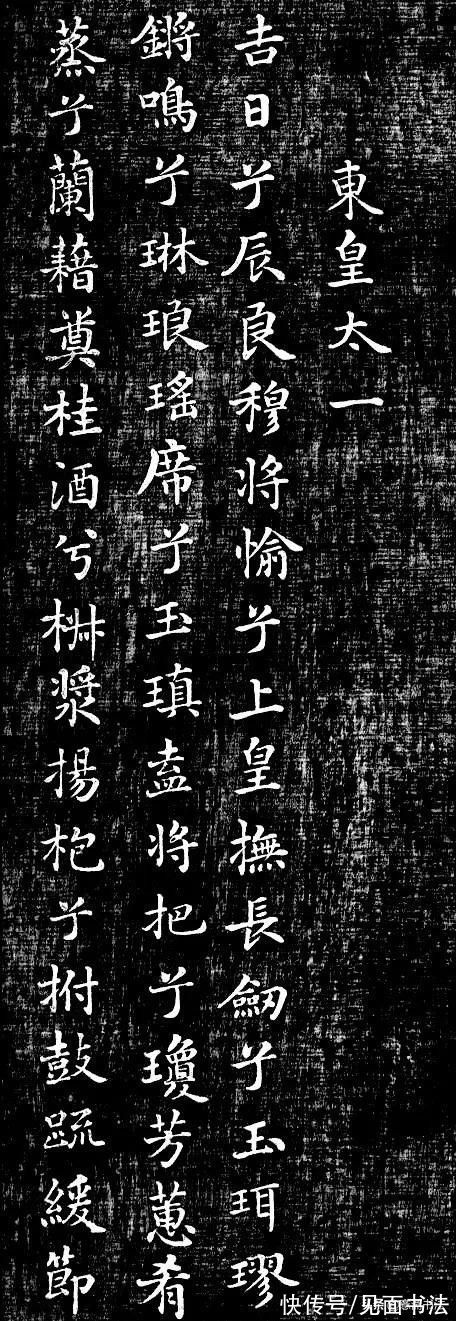 東皇太一
吉日兮辰良穆將愉兮上皇撫長劒兮玉珥璆
鏘鳴兮琳琅瑤席兮玉瑱盍將把兮瓊芳蕙肴
蒸兮蘭藉奠桂酒兮椒漿揚枹兮拊鼓疏緩節
快传号/见面书法